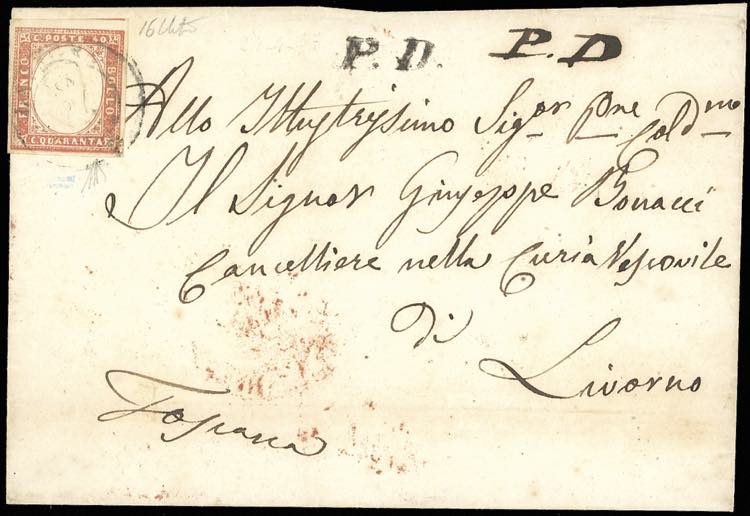 C. POSTE 40
FRANCO
BOLLO
C. QUARANTA
P.D. P.D
Allo Illustrissimo Sig.or P.ne Cold.mo
Il Signor Giuseppe Bonacci
Cancelliere nella Curia Vescovile
di
Livorno
Toscana